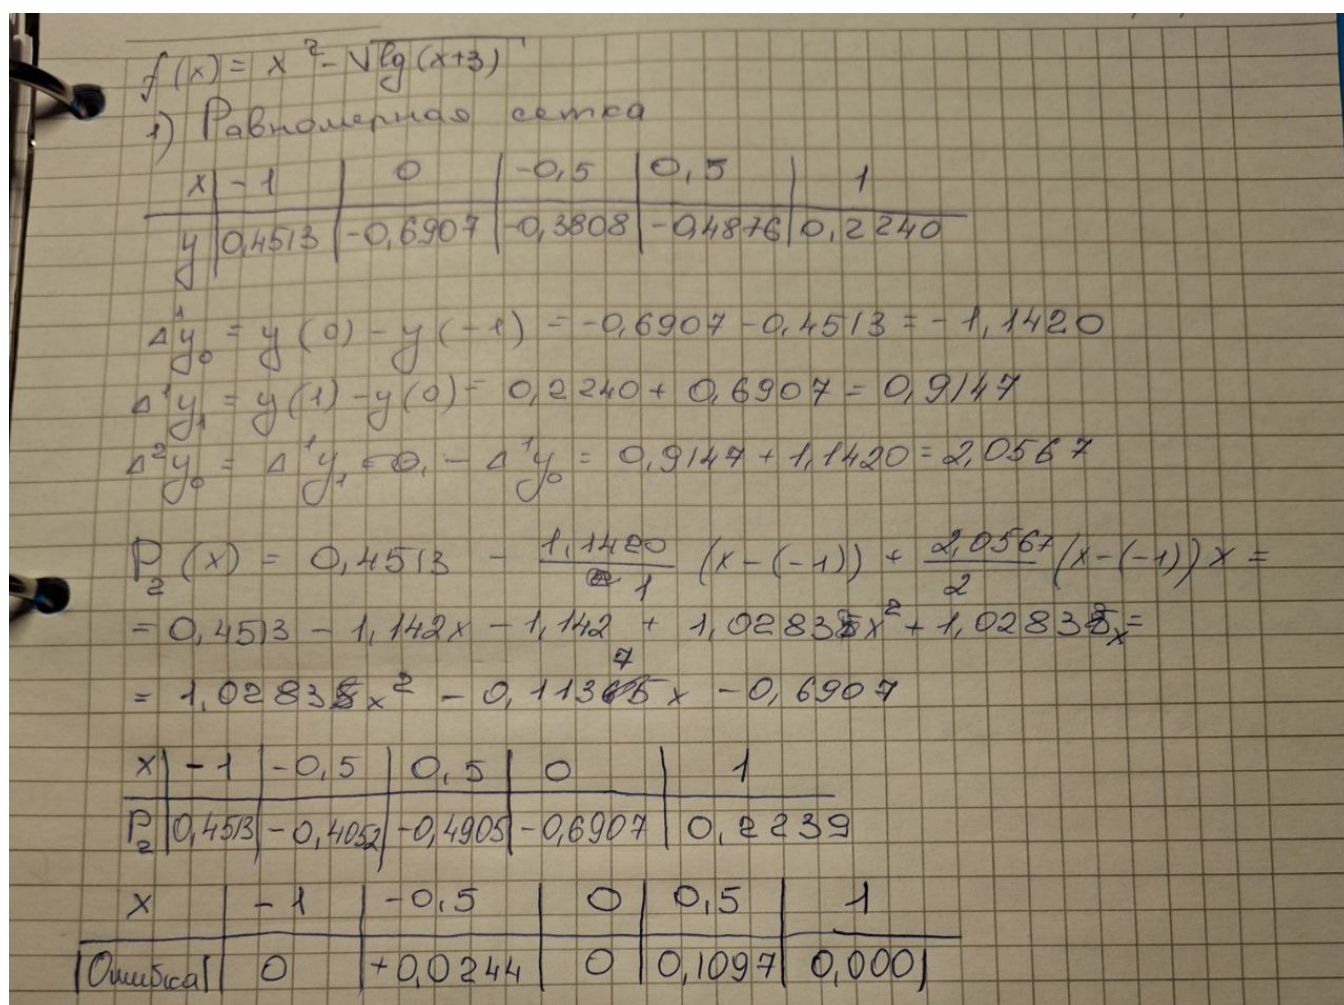 f(x) = x² - √lg(x+3)
1) Равномерная сетка
x | -1 | 0 | -0,5 | 0,5 | 1
y | 0,4513 | -0,6907 | -0,3808 | -0,4876 | 0,2240
Δ¹y₀ = y(0) - y(-1) = -0,6907 - 0,4513 = -1,1420
Δ¹y₁ = y(1) - y(0) = 0,2240 + 0,6907 = 0,9147
Δ²y₀ = Δ¹y₁ - Δ¹y₀ = 0,9147 + 1,1420 = 2,0567
P₂(x) = 0,4513 - 1,1420/1 (x-(-1)) + 2,0567/2 (x-(-1))x =
= 0,4513 - 1,142x - 1,142 + 1,0283x² + 1,0283x =
= 1,0283x² - 0,1137x - 0,6907
x | -1 | -0,5 | 0,5 | 0 | 1
P₂ | 0,4513 | -0,4052 | -0,4905 | -0,6907 | 0,2239
x | -1 | -0,5 | 0 | 0,5 | 1
|Ошибка| | 0 | +0,0244 | 0 | 0,1097 | 0,0001